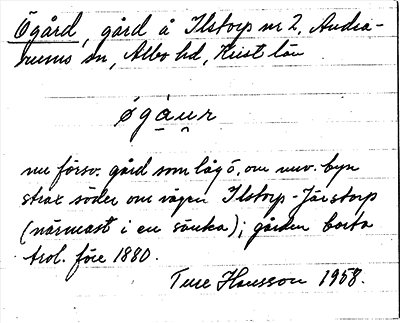 Ögård, gård å Ilstorp nr 2, Andra-
rums sn, Albo hd, Krist län
øgáu̯r
nu försv. gård som låg ö. om nuv. byn
strax söder om vägen Ilstorp - Järstorp
(närmast i en sänka); gården borta
trol. före 1880.
Ture Hansson 1958.